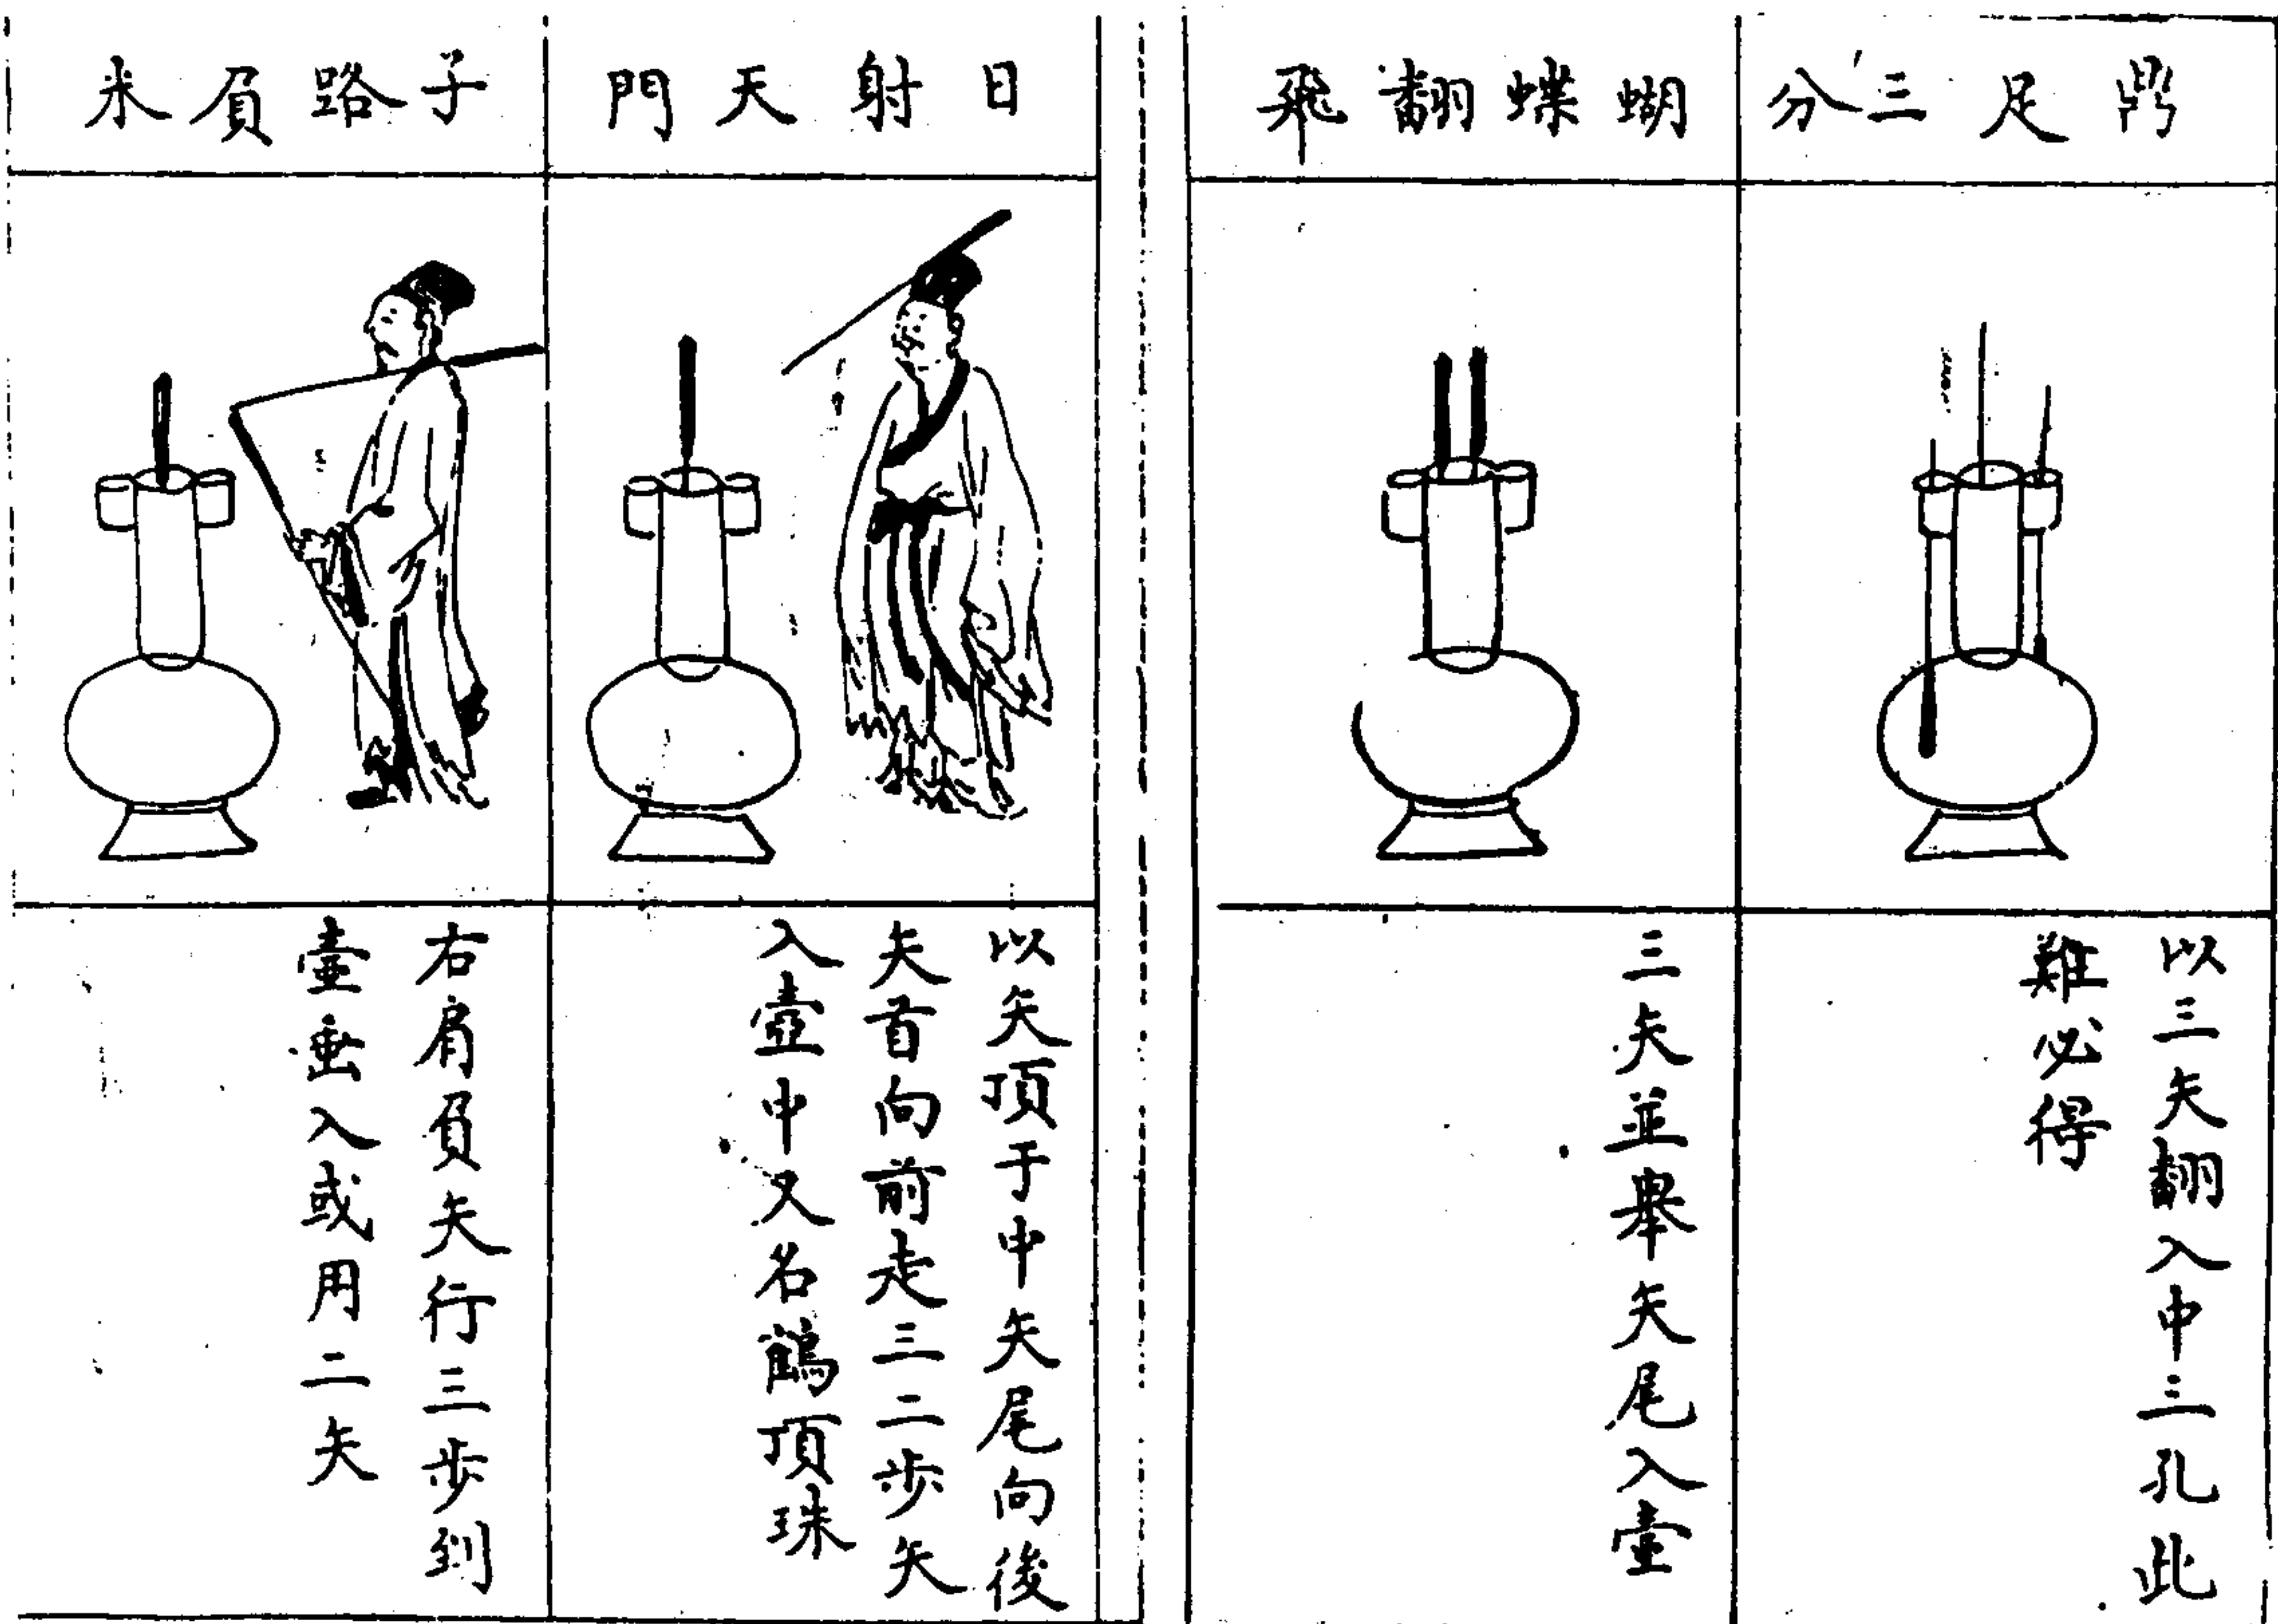 鼎足三分
以三矢翻入中三孔此
難必得
蝴蝶翻飛
三矢並舉矢尾入壼
日射天門
以矢頂于中矢尾向後
矢首向前走三二步矢
入壼中又名鶴頂珠
子路負米
右肩負矢行三步到
壼垂入或用二矢